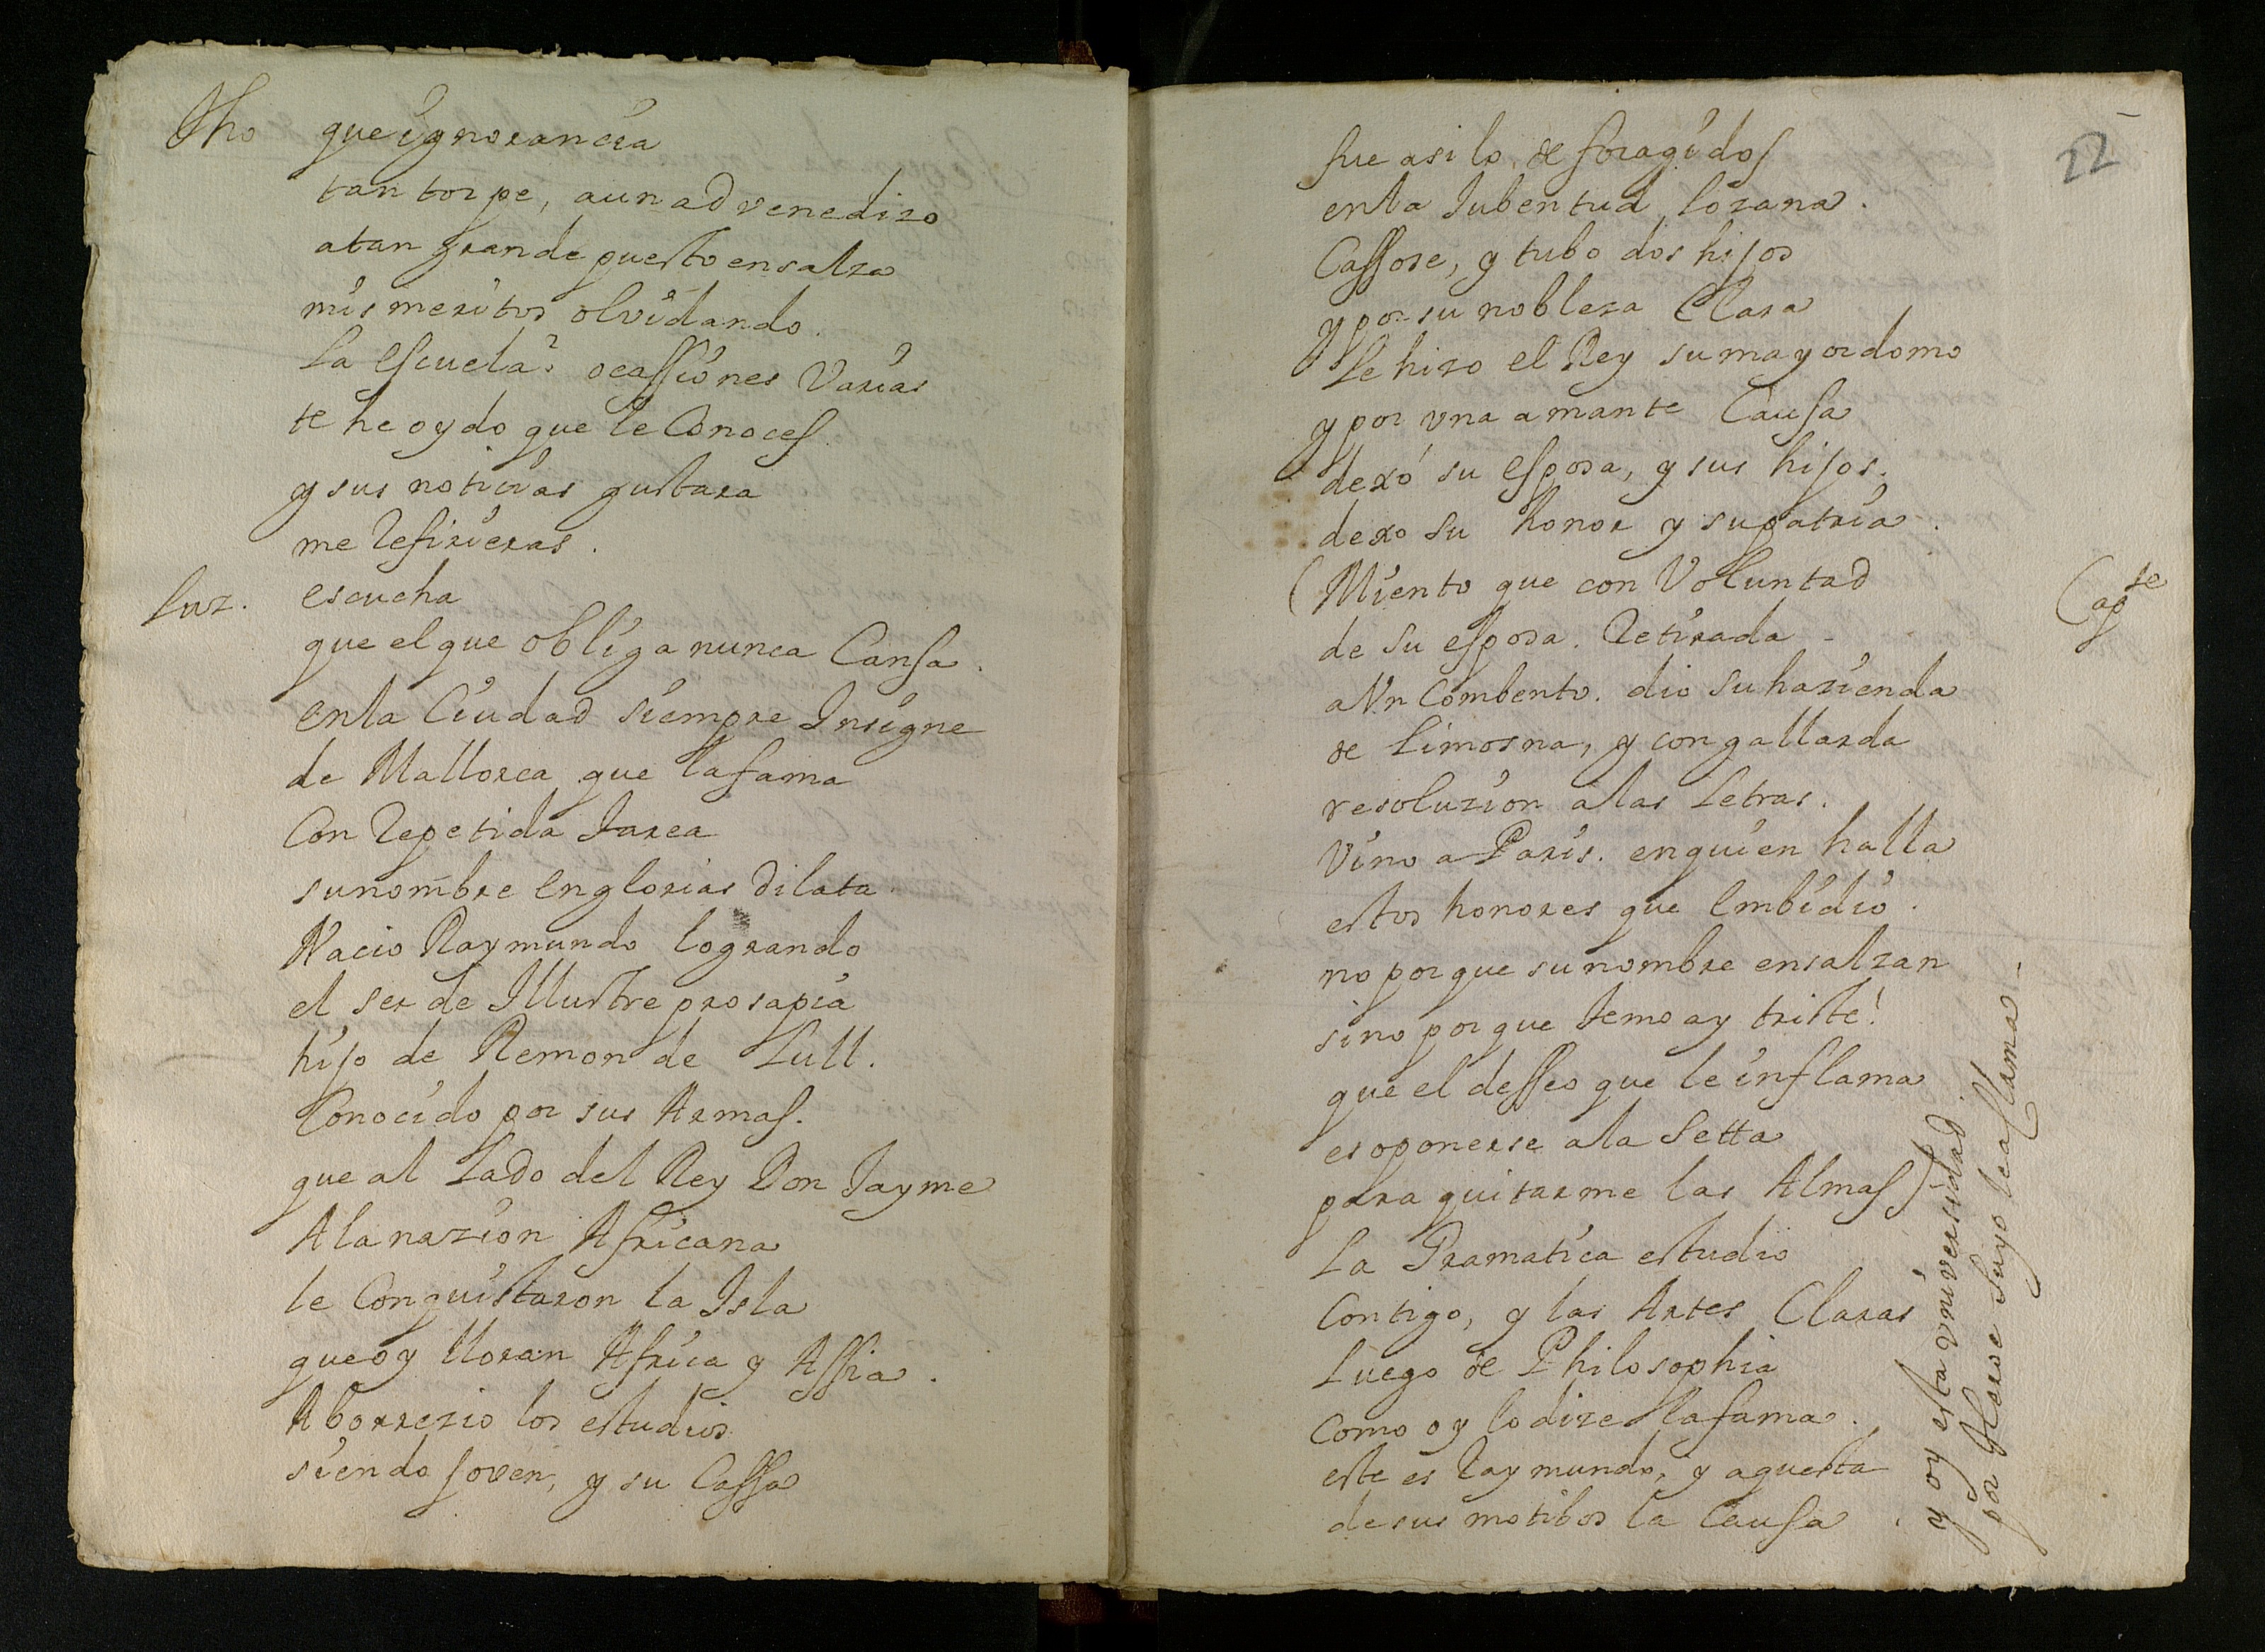 Tho que ignorancia
tan torpe, a un advenedizo
atan grande puesto ensalza
mis meritos olvidando.
La escuela? ocassiones Varias
te he oydo que le Conoces.
y sus noticias gustara
me Refirieras.
Luz. escucha
que el que obliga nunca Cansa.
en la Ciudad siempre Insigne
de Mallorca que la fama
Con Repetida tarea
su nombre en glorias dilata
Nacio Raymundo logrando
el ser de Illustre prosapia
hijo de Remon de Lull.
Conocido por sus Armas.
que al Lado del Rey Don Jayme
A la nazion Africana
le Conquistaron la Isla
que oy lloran Africa y Assia.
Aborrezio los estudios
siendo joven, y su Cassa
22
fue asilo de foragidos
en la Jubentud lozana.
Cassose, y tubo dos hijos
y por su nobleza Clara
Le hizo el Rey su mayordomo
y por vna amante Causa
dexó su esposa, y sus hijos.
dexo su honor y su patria.
(Miento que con Voluntad Apte
de su esposa. Retirada
a Vn Combento. dio su hazienda
de Limosna, y con gallarda
resoluzion a las Letras.
Vino a Paris. en quien halla
estos honores que embidio.
no porque su nombre ensalzan
sino porque temo ay triste!
que el desseo que le inflama
es oponerse a la Setta
para quitarme las Almas)
La Gramatica estudio
Contigo, y las Artes Claras
Luego de Philosophia
Como oy lo dize la fama.
este es Raymundo, y aquesta
de sus motibos la Causa.
y oy esta vniversidad
por Heroe suyo le aclama